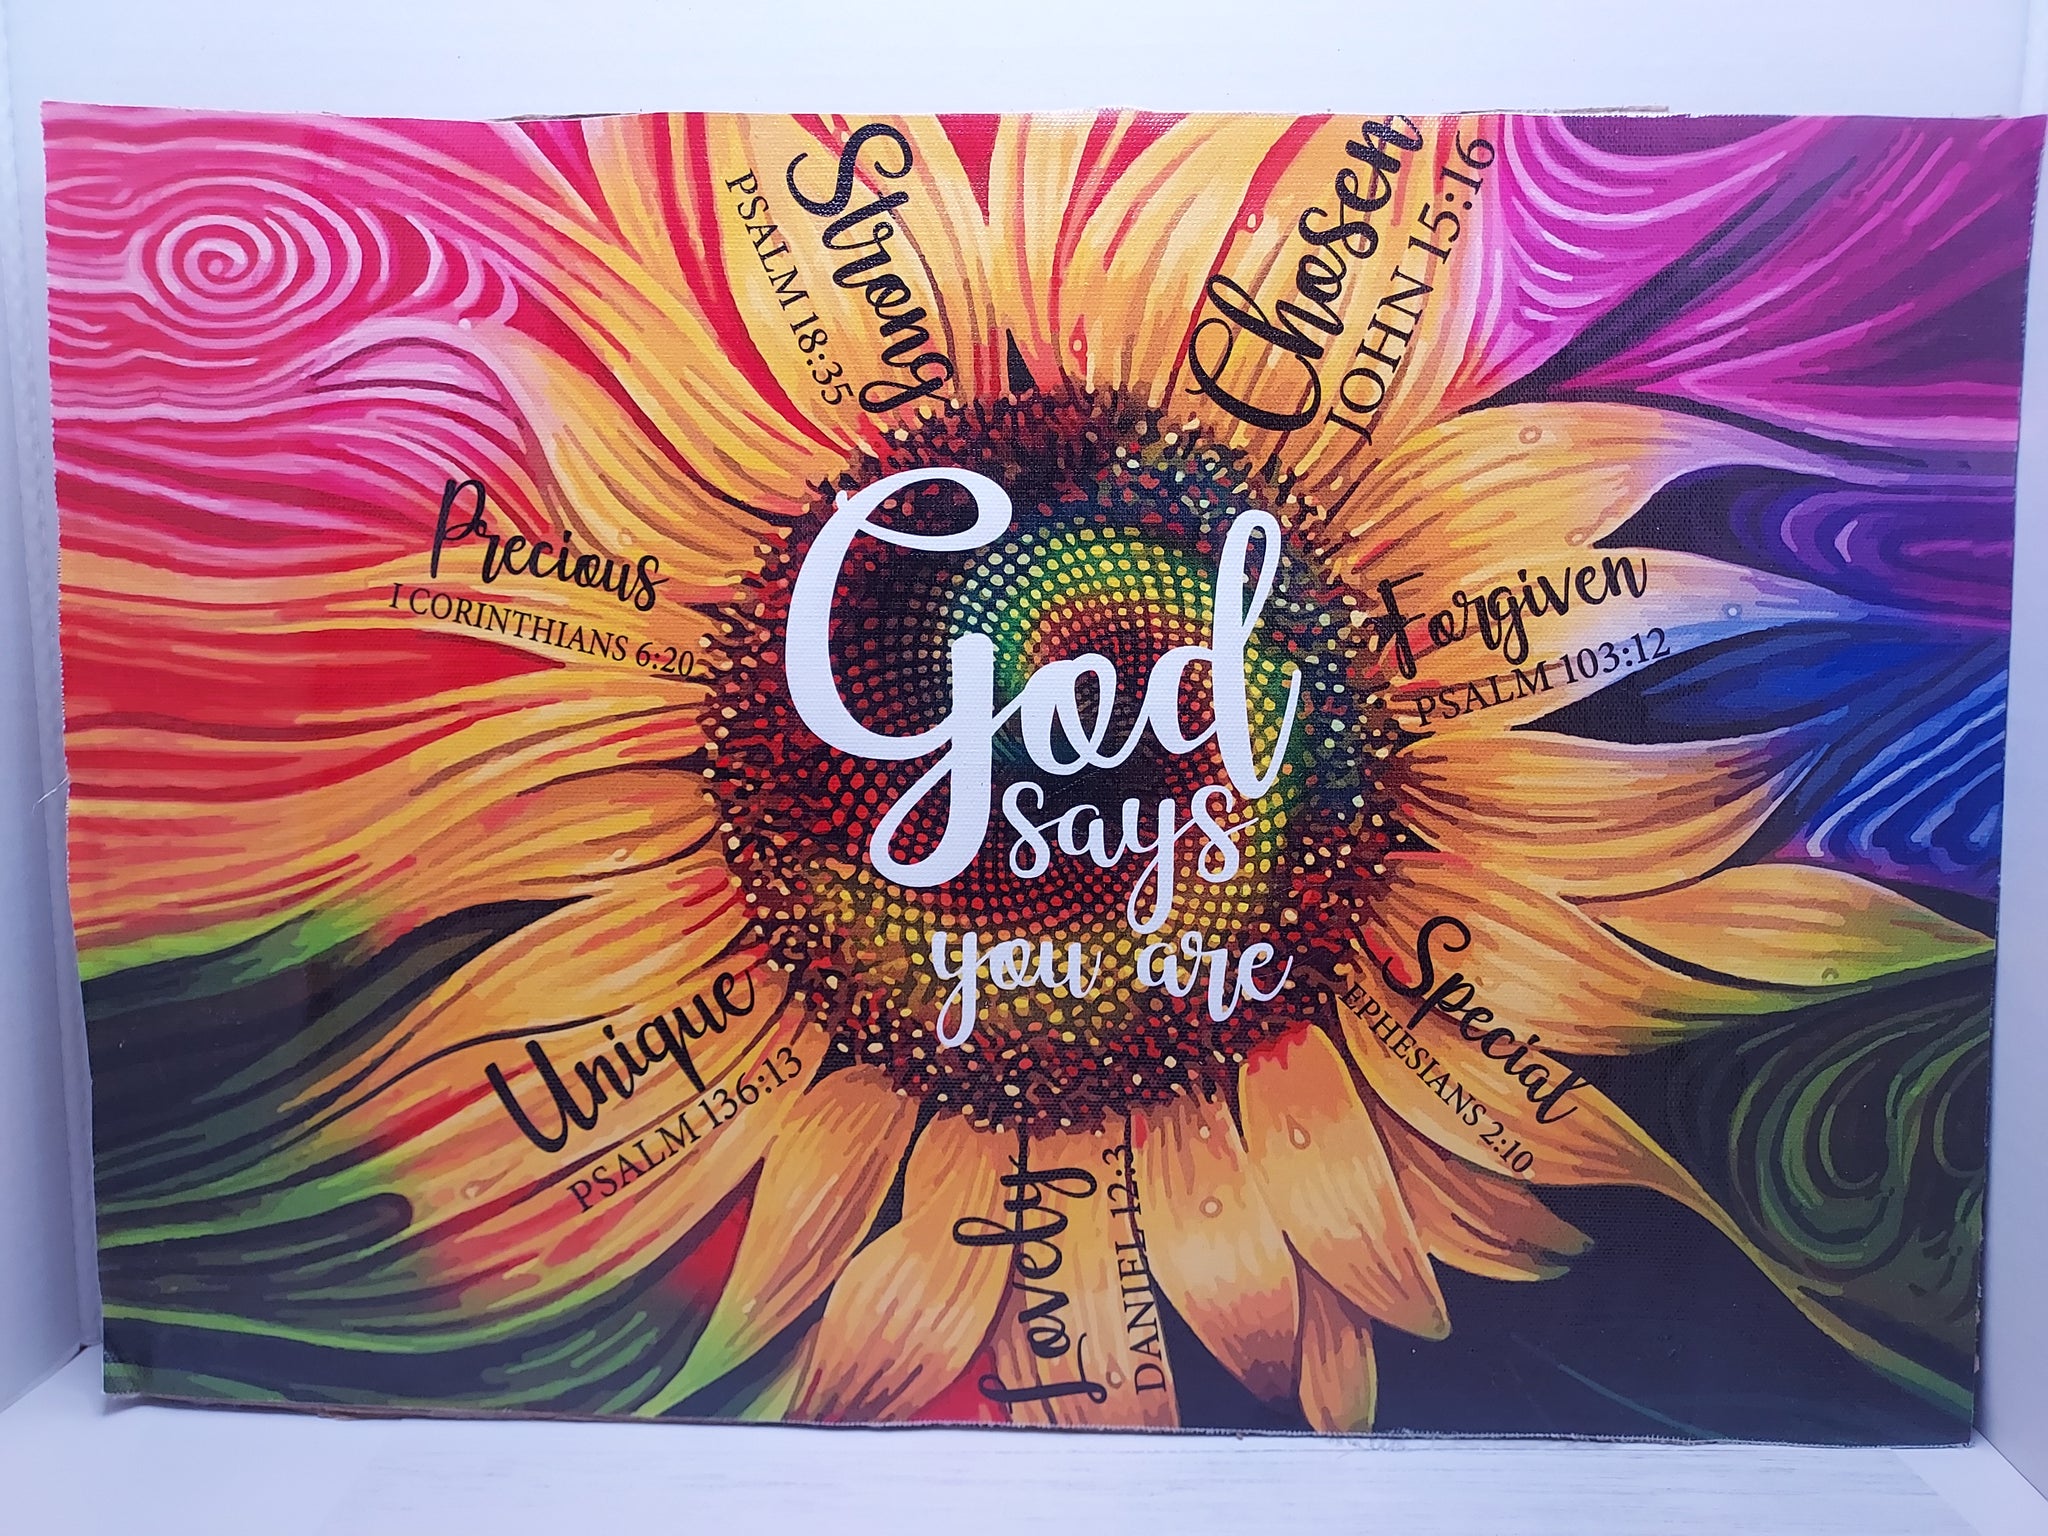 Strong
PSALM 18:35
Chosen
JOHN 15:16
Precious
I CORINTHIANS 6:20
Forgiven
PSALM 103:12
God
says
you are
Unique
PSALM 136:13
Special
EPHESIANS 2:10
Lovely
DANIEL 12:3